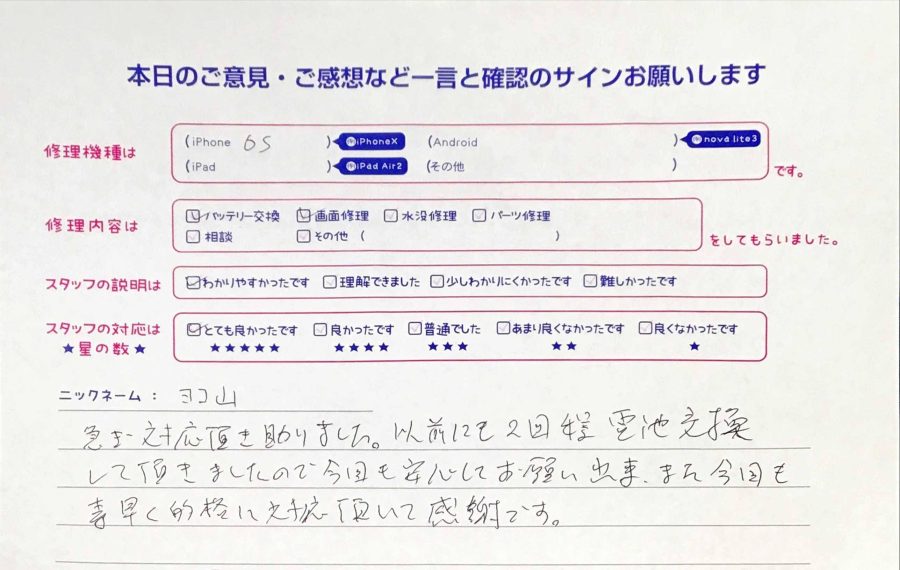 本日のご意見・ご感想など一言と確認のサインお願いします
修理機種は (iPhone 6S ) iPhoneX (Android ) nova lite3
(iPad ) iPad Air2 (その他 ) です。
修理内容は バッテリー交換 画面修理 水没修理 パーツ修理
相談 その他 ( ) をしてもらいました。
スタッフの説明は わかりやすかったです 理解できました 少しわかりにくかったです 難しかったです
スタッフの対応は とても良かったです 良かったです 普通でした あまり良くなかったです 良くなかったです
★星の数★ ★★★★★ ★★★★ ★★★ ★★ ★
ニックネーム: ヨコ山
対応頂き助りました。以前にも2回程電池交換
して頂きましたので今回も安心してお願い出来、また今回も
素早く的格に対応頂いて感謝です。